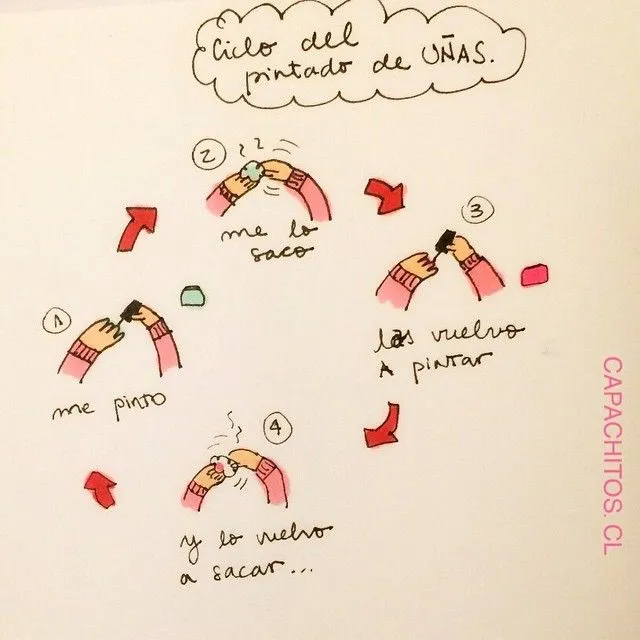 Ciclo del
pintado de UÑAS.
1
me pinto
2
me lo
saco
3
las vuelvo
A pintar
4
y lo vuelvo
a sacar...
CAPACHITOS.CL